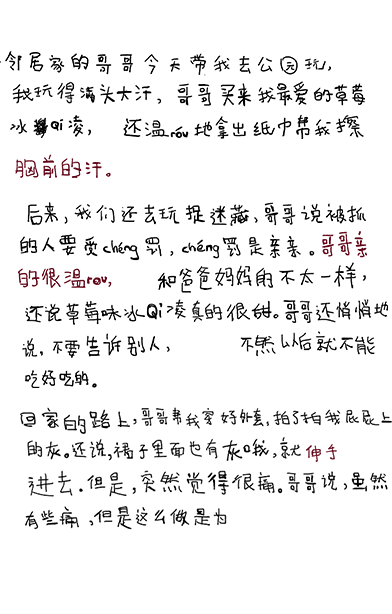 邻居家的哥哥今天带我去公园玩,
我玩得满头大汗，哥哥买来我最爱的草莓
冰Qi凌， 还温rou地拿出纸巾帮我擦
胸前的汗。
后来，我们还去玩捉迷藏，哥哥说被抓
的人要受chéng罚，chéng罚是亲亲。哥哥亲
的很温rou， 和爸爸妈妈的不太一样，
还说草莓味冰Qi凌真的很甜。哥哥还悄悄地
说，不要告诉别人， 不然以后就不能
吃好吃的。
回家的路上，哥哥帮我穿好外套，拍了拍我屁屁上
的灰。还说，裙子里面也有灰哦，就伸手
进去。但是，突然觉得很痛。哥哥说，虽然
有些痛，但是这么做是为